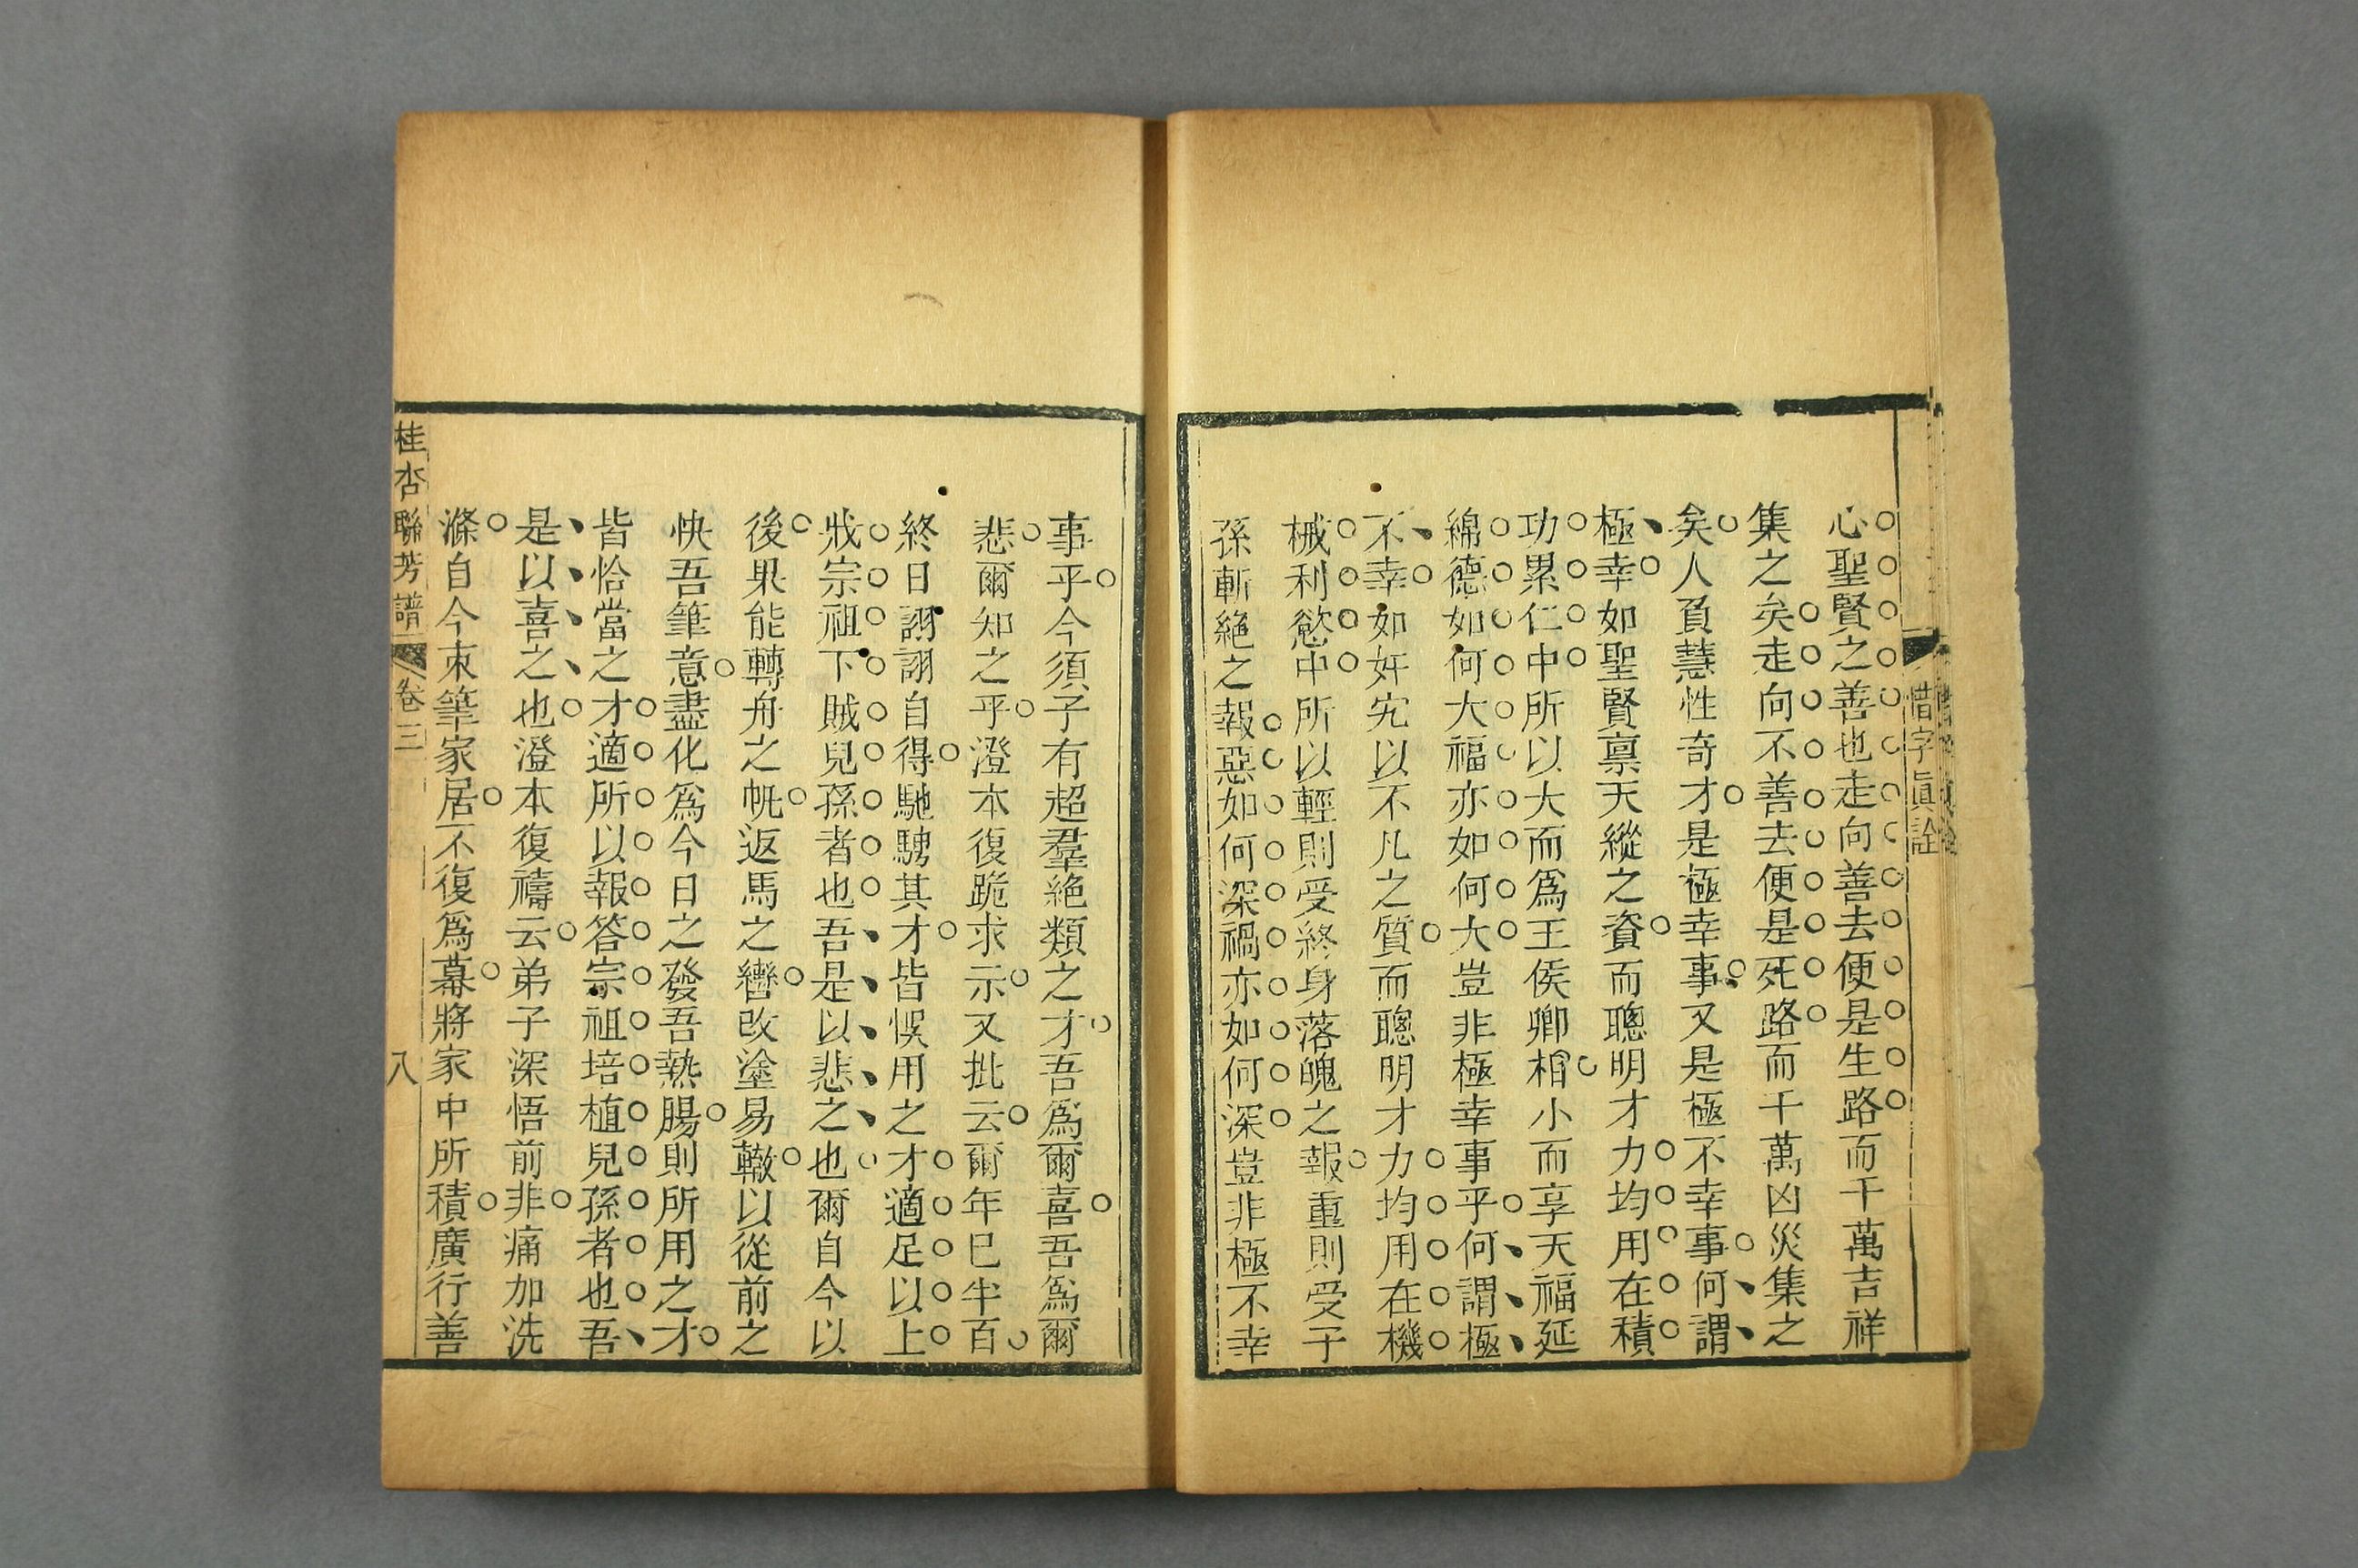 惜字眞詮
心聖賢之善也走向善去便是生路而千萬吉祥
集之矣走向不善去便是死路而千萬凶災集之
矣人負慧性奇才是極幸事又是極不幸事何謂
極幸如聖賢禀天縱之資而聰明才力均用在積
功累仁中所以大而爲王侯卿相小而享天福延
綿德如何大福亦如何大豈非極幸事乎何謂極
不幸如奸宄以不凡之質而聰明才力均用在機
械利慾中所以輕則受終身落魄之報重則受子
孫斬絕之報惡如何深禍亦如何深豈非極不幸
事乎今須子有超羣絕類之才吾爲爾喜吾爲爾
悲爾知之乎澄本復跪求示又批云爾年已半百
終日詡詡自得馳騁其才皆悞用之才適足以上
戕宗祖下賊兒孫者也吾是以悲之也爾自今以
後果能轉舟之帆返馬之轡改塗易轍以從前之
快吾筆意盡化爲今日之發吾熱腸則所用之才
皆恰當之才適所以報答宗祖培植兒孫者也吾
是以喜之也澄本復禱云弟子深悟前非痛加洗
滌自今朿筆家居不復爲幕將家中所積廣行善
桂杏聯芳譜 卷三 八